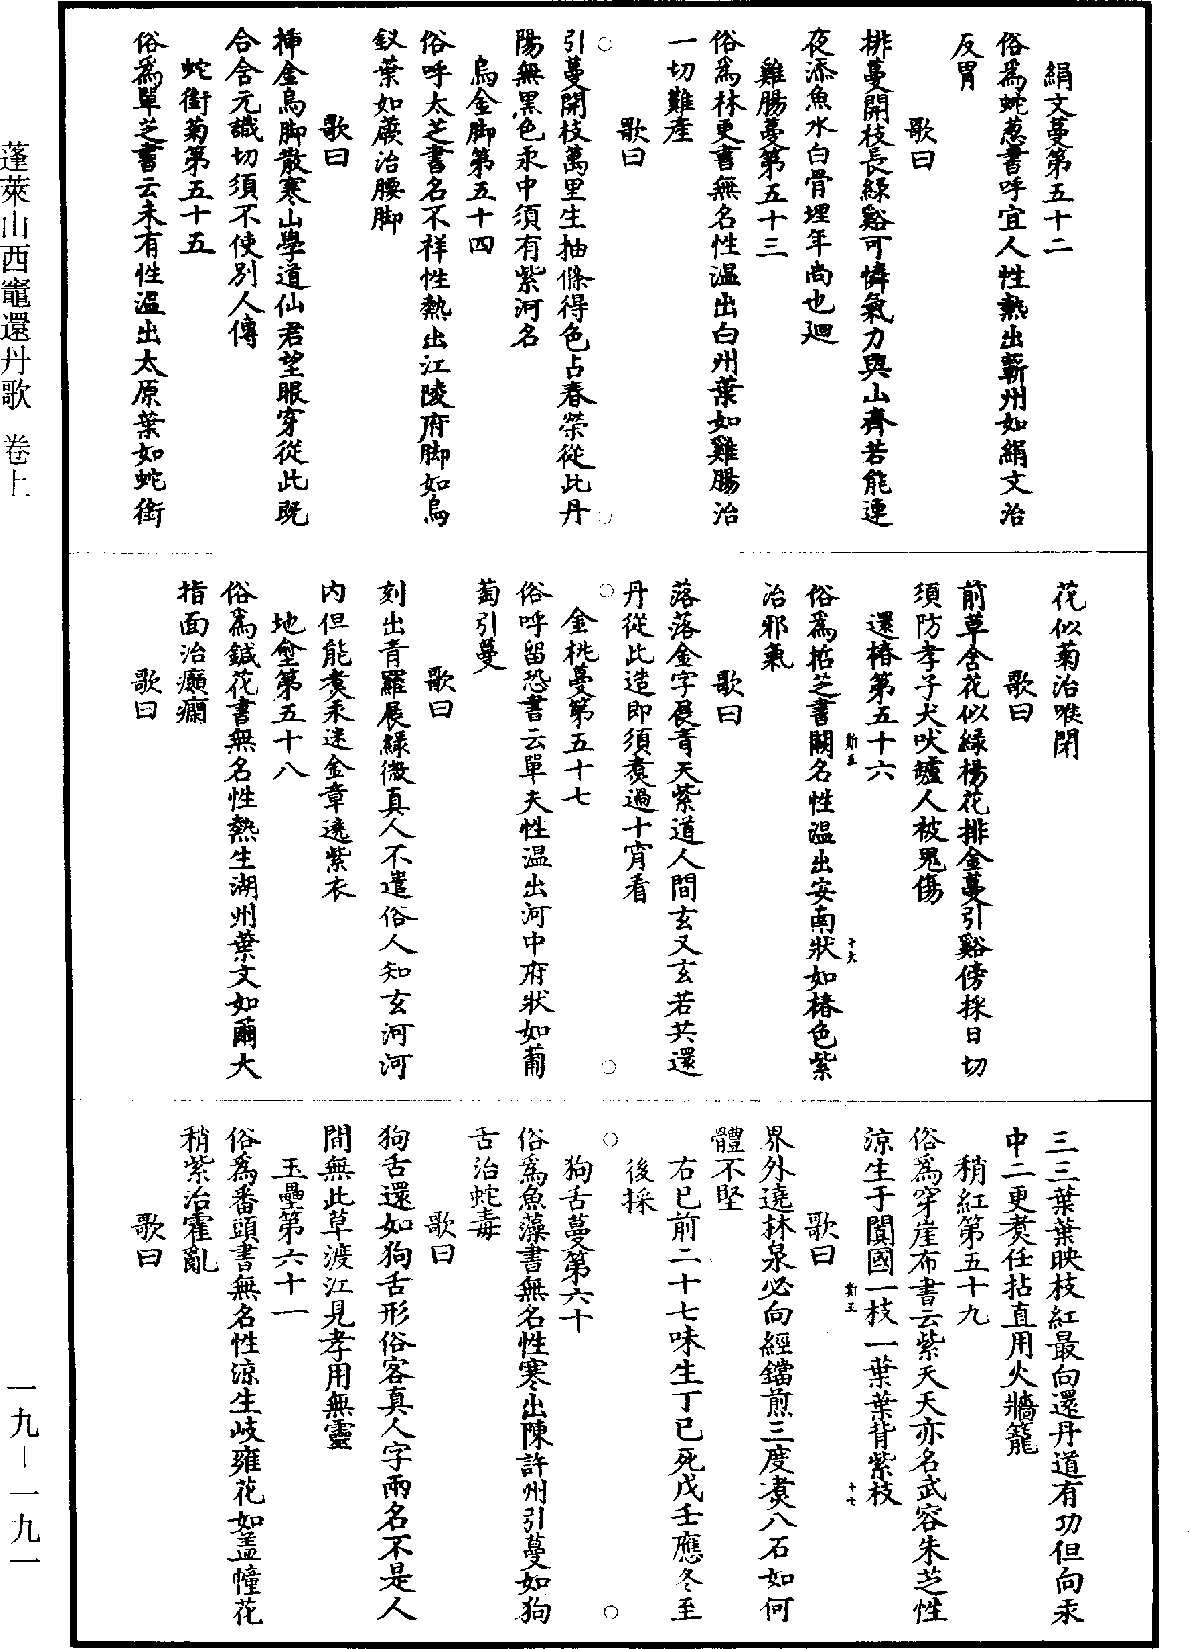 絹文蔓第五十二
俗爲蛇蔥書呼宜人性熱出蘄州如絹文治
反胃
歌曰
排蔓開枝長綠谿可憐氣力與山齊若能連
夜添魚水白骨埋年尚也迴
雞腸蔓第五十三
俗爲林更書無名性溫出白州葉如雞腸治
一切難產
歌曰
引蔓開枝萬里生抽條得色占春榮從此丹
陽無黑色汞中須有紫河名
烏金脚第五十四
俗呼太芝書名不祥性熱出江陵府脚如烏
釵葉如薐治腰脚
歌曰
揷金烏脚散寒山學道仙君望眼穿從此既
合含元識切須不使別人傳
蛇銜菊第五十五
俗爲單芝書云未有性溫出太原葉如蛇銜
花似菊治喉閉
歌曰
前草含花似綠楊花排金蔓引谿傍採日切
須防孝子犬吠驢人被鬼傷
還椿第五十六
俗爲哲芝書闕名性溫出安南狀如椿色紫
治邪氣
歌曰
落落金字展青天紫道人間玄又玄若共還
丹從此造即須煑過十宵看
金桃蔓第五十七
俗呼留恐書云單夫性溫出河中府狀如葡
萄引蔓
歌曰
刻出青羅展綠微真人不遣俗人知玄河河
內但能煑汞迷金章遶紫衣
地坌第五十八
俗爲鍼花書無名性熱生湖州葉文如薾大
指面治癲癎
歌曰
三三葉葉映枝紅最向還丹道有功但向汞
中二更煑任拈直用火牆籠
稍紅第五十九
俗爲穿崖布書云紫天天亦名武容朱芝性
涼生于闐國一枝一葉葉背紫枝
歌曰
界外遶林泉必向經鐺煎三度煑八石如何
體不堅
右已前二十七味生丁巳死戊壬應冬至
後採
狗舌蔓第六十
俗爲魚藻書無名性寒出陳許州引蔓如狗
舌治蛇毒
歌曰
狗舌還如狗舌形俗客真人字兩名不是人
間無此草渡江見孝用無靈
玉壘第六十一
俗爲番頭書無名性涼生岐雍花如盖幢花
稍紫治霍亂
歌曰
蓬萊山西竈還丹歌 卷上
一九—一九一